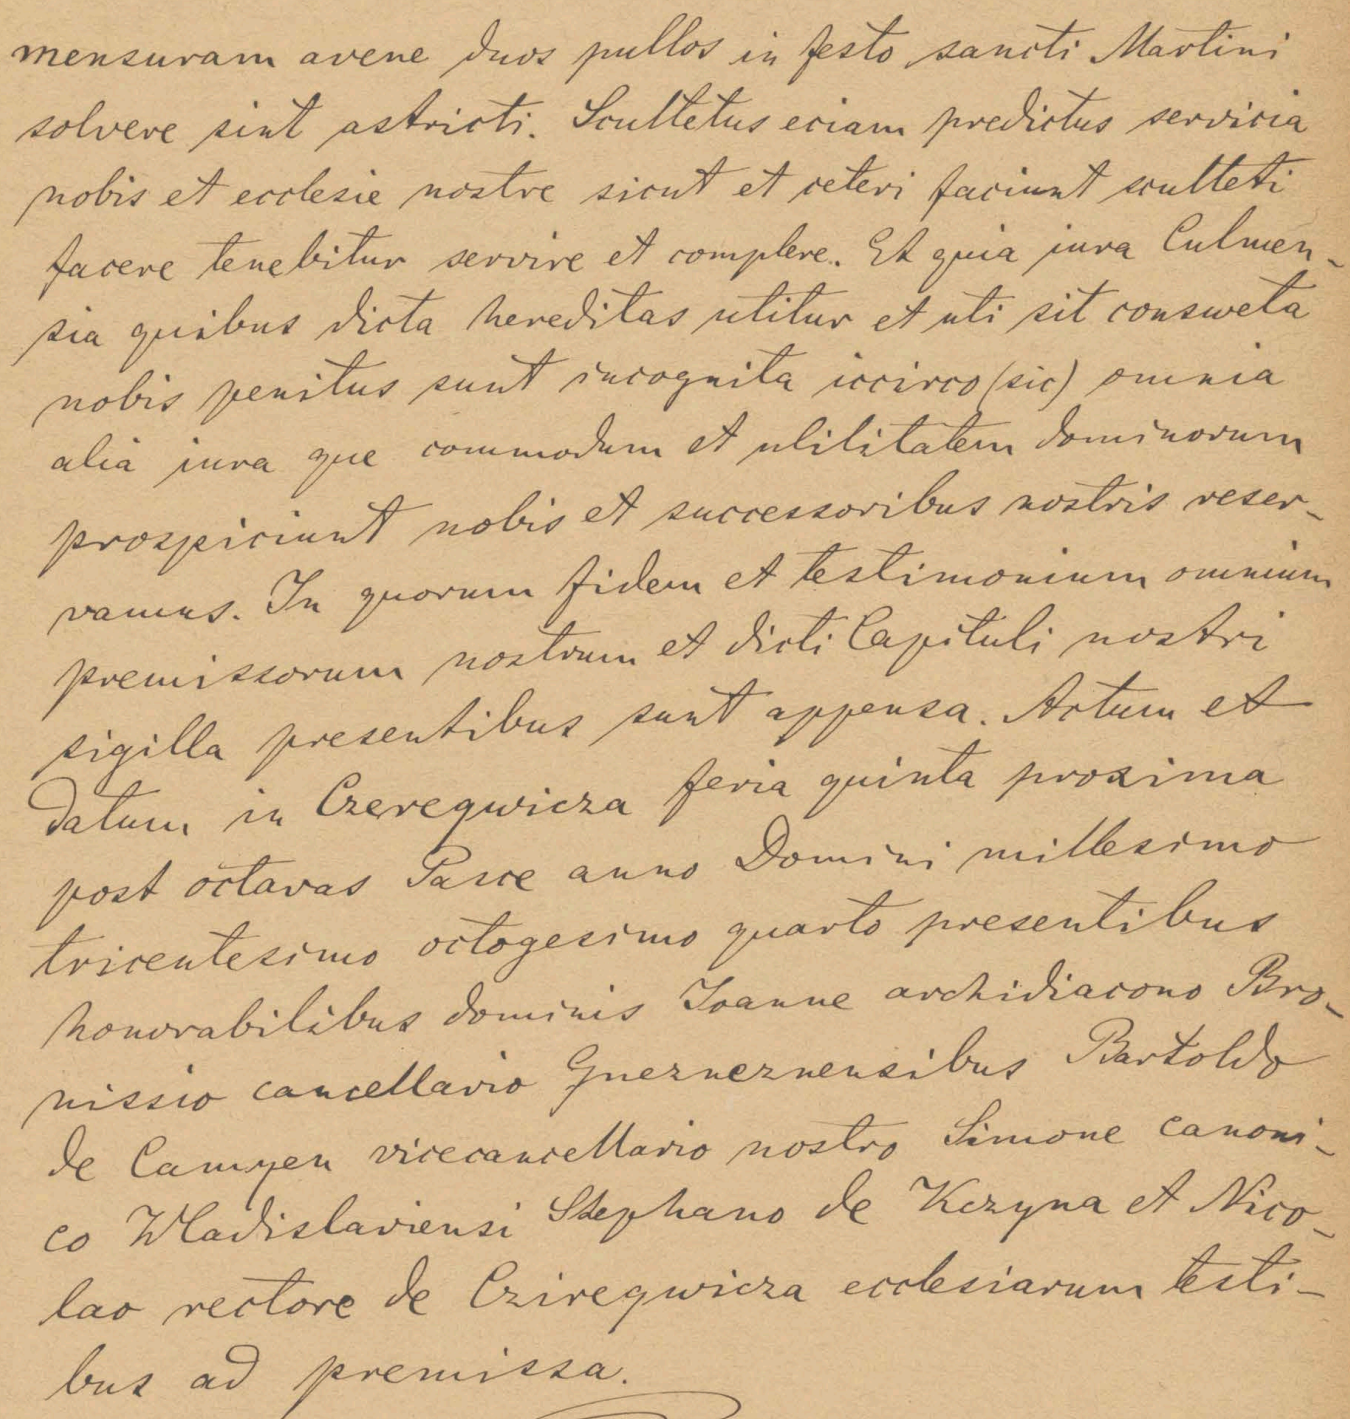 mensuram avene duos pullos in festo sancti Martini
solvere sint astricti. Scultetus eciam predictus servicia
nobis et ecclesie nostre sicut et ceteri faciunt sculteti
facere tenebitur servire et complere. Et quia iura Culmen-
sia quibus dicta hereditas utitur et uti sit consweta
nobis penitus sunt incognita iccirco (sic) omnia
alia iura que commodum et utilitatem dominorum
prospiciunt nobis et successoribus nostris reser-
vamus. In quorum fidem et testimonium omnium
premissorum nostrum et dicti Capituli nostri
sigilla presentibus sunt appensa. Actum et
datum in Czereqwicza feria quinta proxima
post octavas Pasce anno Domini millesimo
tricentesimo octogesimo quarto presentibus
honorabilibus dominis Ioanne archidiacono Bro-
nissio cancellario Gnezneznensibus Bartoldo
de Camyen vicecancellario nostro Simone canoni-
co Wladislaviensi Stephano de Kczyna et Nico-
lao rectore de Czireqwicza ecclesiarum testi-
bus ad premissa.